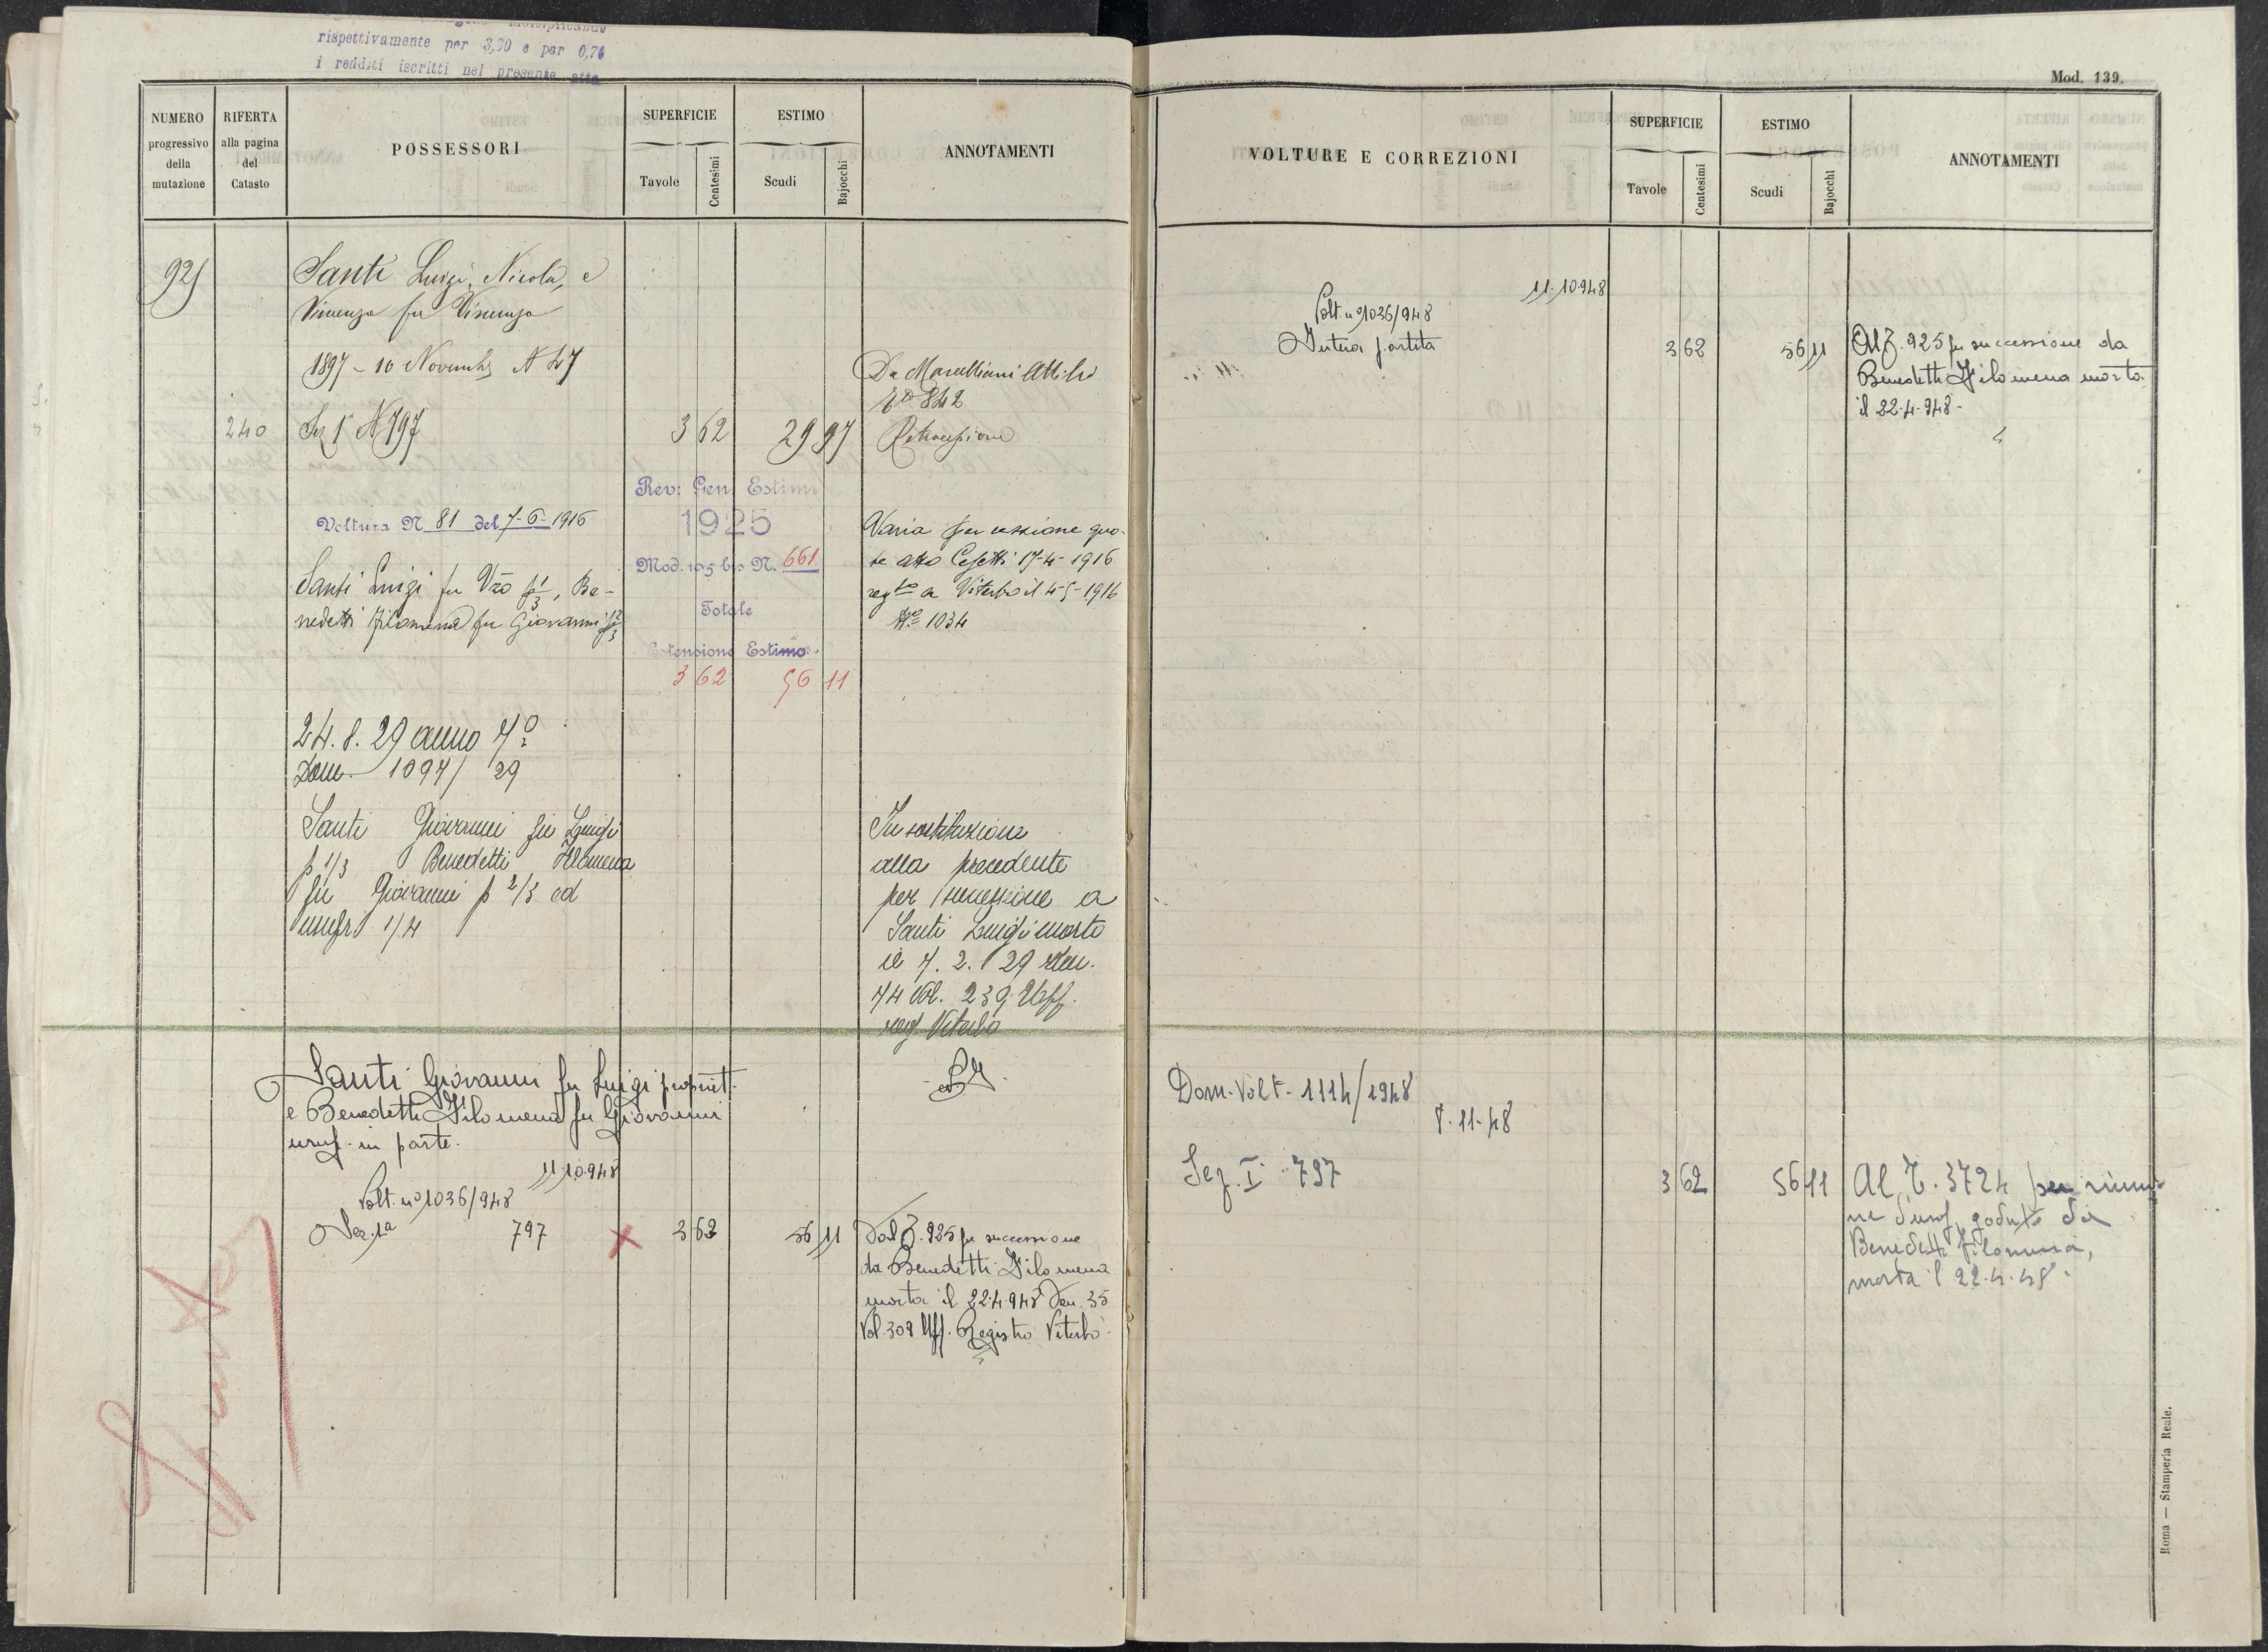 rispettivamente per 3,20 e per 0,76
i redditi iscritti nel presente atto
NUMERO
progressivo
della
mutazione
RIFERTA
alla pagina
del
Catasto
POSSESSORI
SUPERFICIE
Tavole
Centesimi
ESTIMO
Scudi
Bajocchi
ANNOTAMENTI
925
Santi Luigi, Nicola, e
Vincenzo fu Vincenzo
1897 - 10 Novembre N 47
Da Marcelliani Attilio
842
240 Sez 1ª N 797 3 62 29 97 Retrocessione
Rev: Gen. Estimi
1925
Mod. 105 bis N. 661
Totale
Estensione Estimo
3 62 56 11
Voltura N 81 del 7-6-1916
Santi Luigi fu Vzo p 1/3, Be-
nedetti Filomena fu Giovanni p 2/3
Varia per cessione quo-
te atto Cesetti 17-4-1916
regto a Viterbo il 4-5-1916
No 1034
24.8.29 anno 7º
Dom. 1097/29
Santi Giovanni fu Luigi
p 1/3 Benedetti Filomena
fu Giovanni p 2/3 ed
usufr. 1/4
In sostituzione
alla precedente
per successione a
Santi Luigi morto
il 7.2.29 den.
74 Vol. 239 Uff.
reg. Viterbo
Santi Giovanni fu Luigi propriet.
e Benedetti Filomena fu Giovanni
usuf. in parte.
11.10.948
Volt. nº 1036/948
Sez. 1ª 797 x 3 62 56 11
Dal T. 925 per successione
da Benedetti Filomena
morta il 22.4.948 Den. 35
Vol. 309 Uff. Registro Viterbo.
Spento
Mod. 139.
VOLTURE E CORREZIONI
SUPERFICIE
Tavole
Centesimi
ESTIMO
Scudi
Bajocchi
ANNOTAMENTI
11.10.948
Volt. nº 1036/948
Intera partita 3 62 56 11
Al T. 925 per successione da
Benedetti Filomena morta
il 22.4.948-
Dom. Volt. 1114/1948
8.11.48
Sez. I 797 3 62 56 11
Al T. 3724 per riunio-
ne d'usuf. goduto da
Benedetti Filomena,
morta il 22.4.48.
Roma — Stamperia Reale.